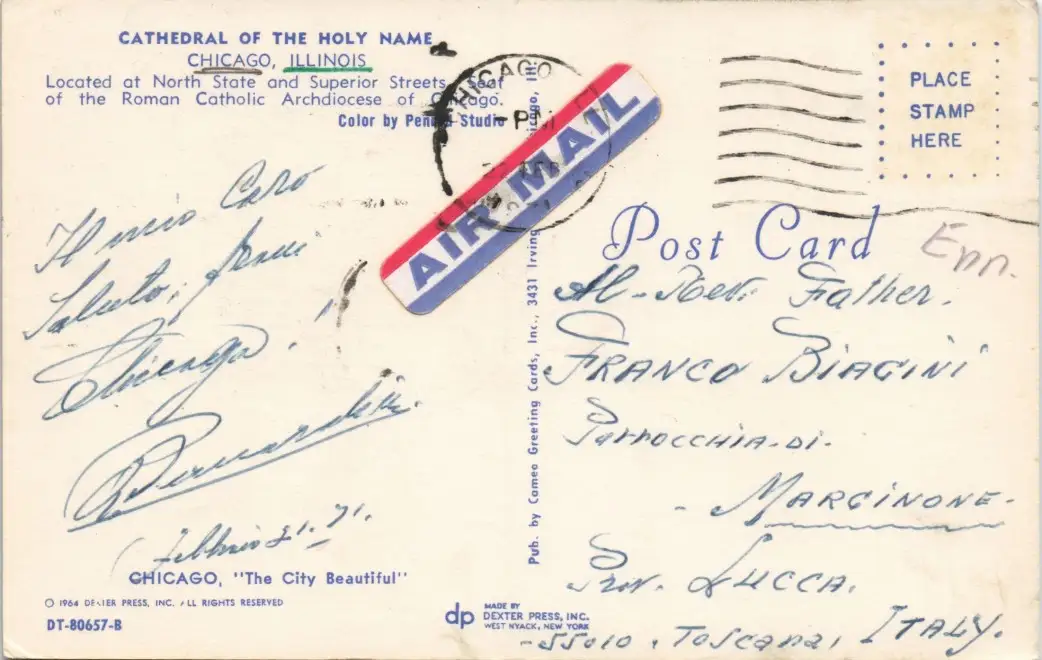 CATHEDRAL OF THE HOLY NAME
CHICAGO, ILLINOIS
Located at North State and Superior Streets, Seat
of the Roman Catholic Archdiocese of Chicago.
Color by Studio
CHICAGO
PM
AIR MAIL
PLACE
STAMP
HERE
Post Card
Enn.
Caro
Saluto,
Chicago.
Febbraio 21. 71.
CHICAGO, "The City Beautiful"
© 1964 DEXTER PRESS, INC. ALL RIGHTS RESERVED
DT-80657-B
Pub. by Cameo Greeting Cards, Inc., 3431 Irving Chicago, Ill.
dp
MADE BY
DEXTER PRESS, INC.
WEST NYACK, NEW YORK
Al-Rev. Father.
FRANCO BIAGINI
Parrocchia-di-
- MARGINONE-
Prov. LUCCA.
-55010, Toscana, ITALY.